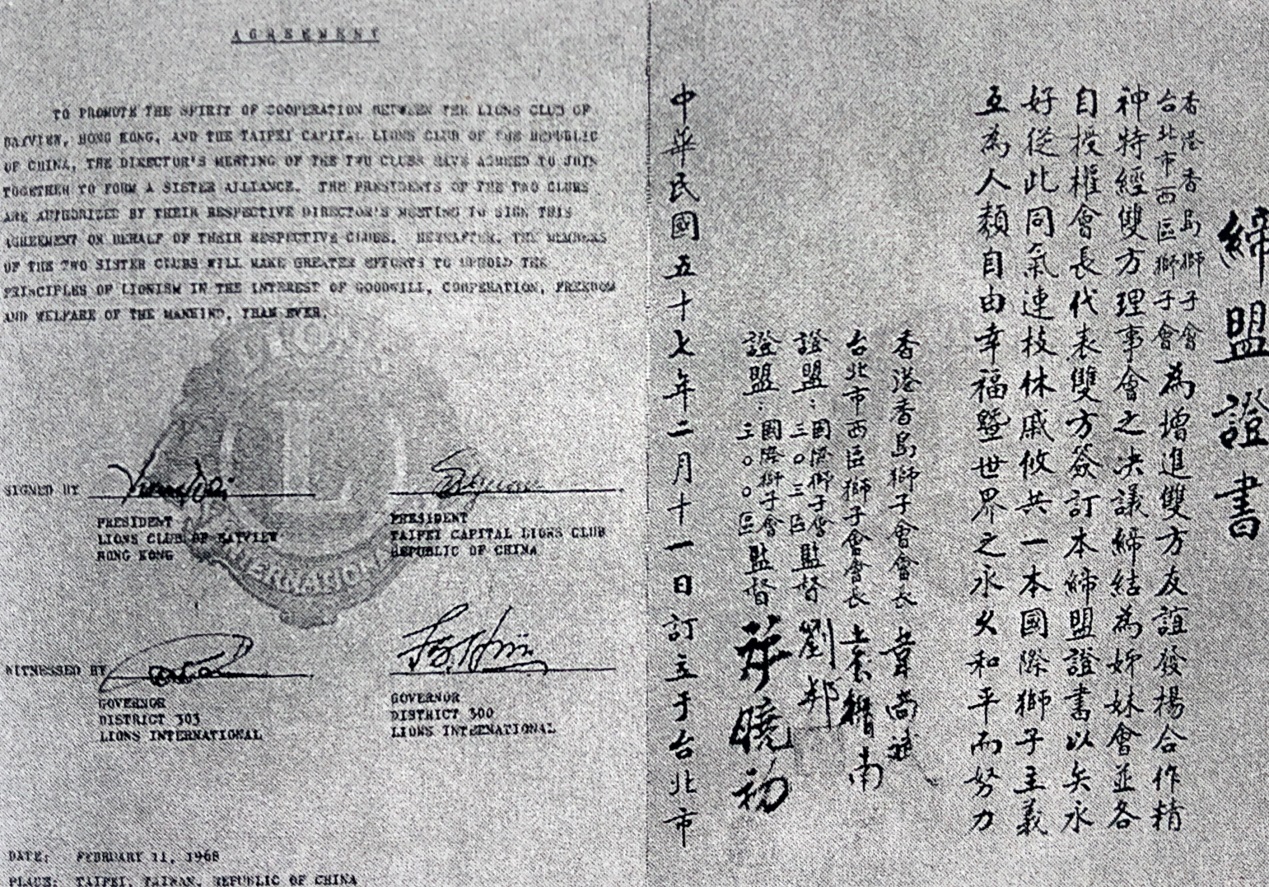 AGREEMENT
TO PROMOTE THE SPIRIT OF COOPERATION BETWEEN THE LIONS CLUB OF
BAYVIEW, HONG KONG, AND THE TAIPEI CAPITAL LIONS CLUB OF THE REPUBLIC
OF CHINA, THE DIRECTOR'S MEETING OF THE TWO CLUBS HAVE AGREED TO JOIN
TOGETHER TO FORM A SISTER ALLIANCE. THE PRESIDENTS OF THE TWO CLUBS
ARE AUTHORIZED BY THEIR RESPECTIVE DIRECTOR'S MEETING TO SIGN THIS
AGREEMENT ON BEHALF OF THEIR RESPECTIVE CLUBS. HEREAFTER, THE MEMBERS
OF THE TWO SISTER CLUBS WILL MAKE GREATER EFFORTS TO UPHOLD THE
PRINCIPLES OF LIONISM IN THE INTEREST OF GOODWILL, COOPERATION, FREEDOM
AND WELFARE OF THE MANKIND, THAN EVER.
LIONS
L
INTERNATIONAL
SIGNED BY
PRESIDENT
LIONS CLUB OF BAYVIEW
HONG KONG
PRESIDENT
TAIPEI CAPITAL LIONS CLUB
REPUBLIC OF CHINA
WITNESSED BY
GOVERNOR
DISTRICT 303
LIONS INTERNATIONAL
GOVERNOR
DISTRICT 300
LIONS INTERNATIONAL
DATE: FEBRUARY 11, 1968
PLACE: TAIPEI, TAIWAN, REPUBLIC OF CHINA
締盟證書
香港香島獅子會
台北市西區獅子會
為增進雙方友誼發揚合作精
神特經雙方理事會之決議締結為姊妹會並各
自授權會長代表雙方簽訂本締盟證書以矢永
好從此同氣連枝休戚攸共一本國際獅子主義
互為人類自由幸福暨世界之永久和平而努力
香港香島獅子會會長 韋尚斌
台北市西區獅子會會長 袁揖南
證盟:國際獅子會三〇三區監督 劉邦
證盟:國際獅子會三〇〇區監督 許曉初
中華民國五十七年二月十一日訂立于台北市